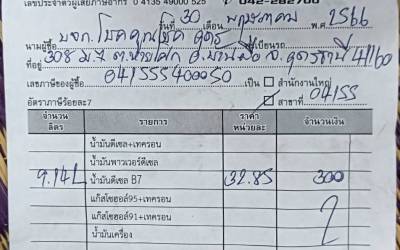 เลขประจำตัวผู้เสียภาษีอากร 0 4135 49000 525 042-282700
วันที่ 30 เดือน พฤษภาคม พ.ศ. 2566
นามผู้ซื้อ บจก. โชคคูณโชค อุดร ทะเบียนรถ
ที่อยู่ 308 ม.7 ต. อ.บ้านผือ จ.อุดรธานี 41160
เลขภาษีของผู้ซื้อ 0415554000050 เป็น สำนักงานใหญ่
อัตราภาษีร้อยละ7 สาขาที่ 04155
จำนวนลิตร รายการ ราคาหน่วยละ จำนวนเงิน
น้ำมันดีเซล+เทครอน
น้ำมันพาวเวอร์ดีเซล
9.14L น้ำมันดีเซล B7 32.85 300
แก๊สโซฮอล์95+เทครอน
แก๊สโซฮอล์91+เทครอน
น้ำมันเครื่อง